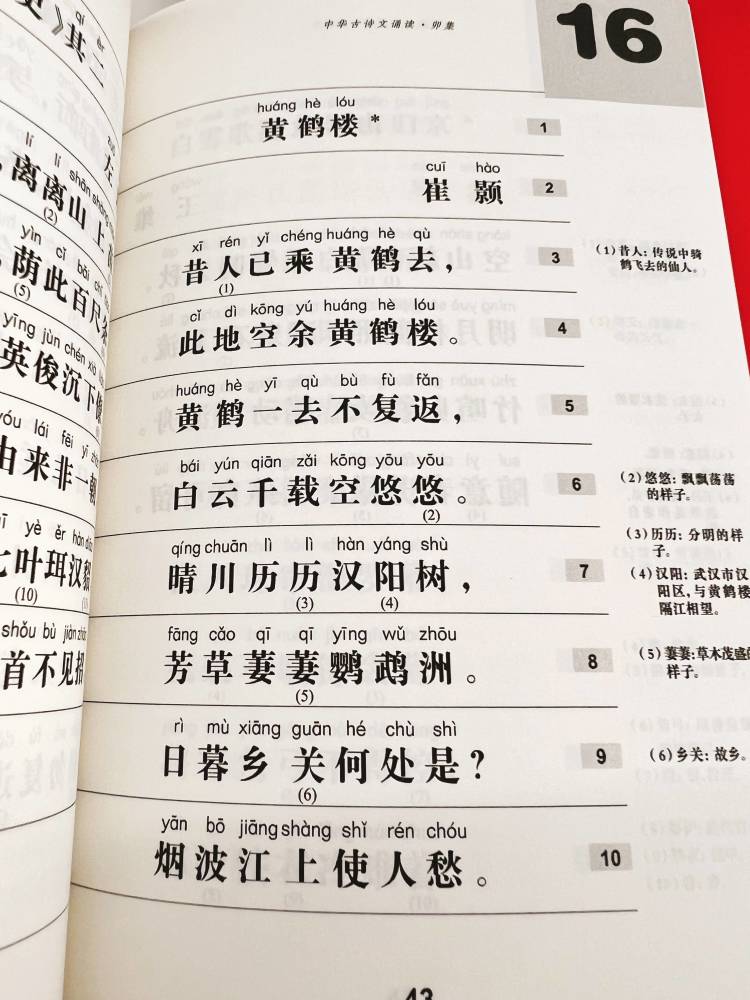 qí èr
》其二
左
lí lí shān shàng
离离山上
(2)
yìn cǐ bǎi chǐ
荫此百尺条
(5)
yīng jùn chén xià
英俊沉下僚
yóu lái fēi yì zhāo
由来非一朝
yè ěr hàn diāo
七叶珥汉貂
(10)
shǒu bù jiàn zhāo
首不见招
中华古诗文诵读·卯集
16
huáng hè lóu
黄鹤楼* 1
cuī hào
崔颢 2
xī rén yǐ chéng huáng hè qù
昔人已乘黄鹤去， 3
(1)
(1)昔人：传说中骑
鹤飞去的仙人。
cǐ dì kōng yú huáng hè lóu
此地空余黄鹤楼。 4
huáng hè yī qù bù fù fǎn
黄鹤一去不复返， 5
bái yún qiān zǎi kōng yōu yōu
白云千载空悠悠。 6
(2)
(2)悠悠：飘飘荡荡
的样子。
qíng chuān lì lì hàn yáng shù
晴川历历汉阳树， 7
(3) (4)
(3)历历：分明的样
子。
(4)汉阳：武汉市汉
阳区，与黄鹤楼
隔江相望。
fāng cǎo qī qī yīng wǔ zhōu
芳草萋萋鹦鹉洲。 8
(5)
(5)萋萋：草木茂盛的
样子。
rì mù xiāng guān hé chù shì
日暮乡关何处是？ 9
(6)
(6)乡关：故乡。
yān bō jiāng shàng shǐ rén chóu
烟波江上使人愁。 10
43